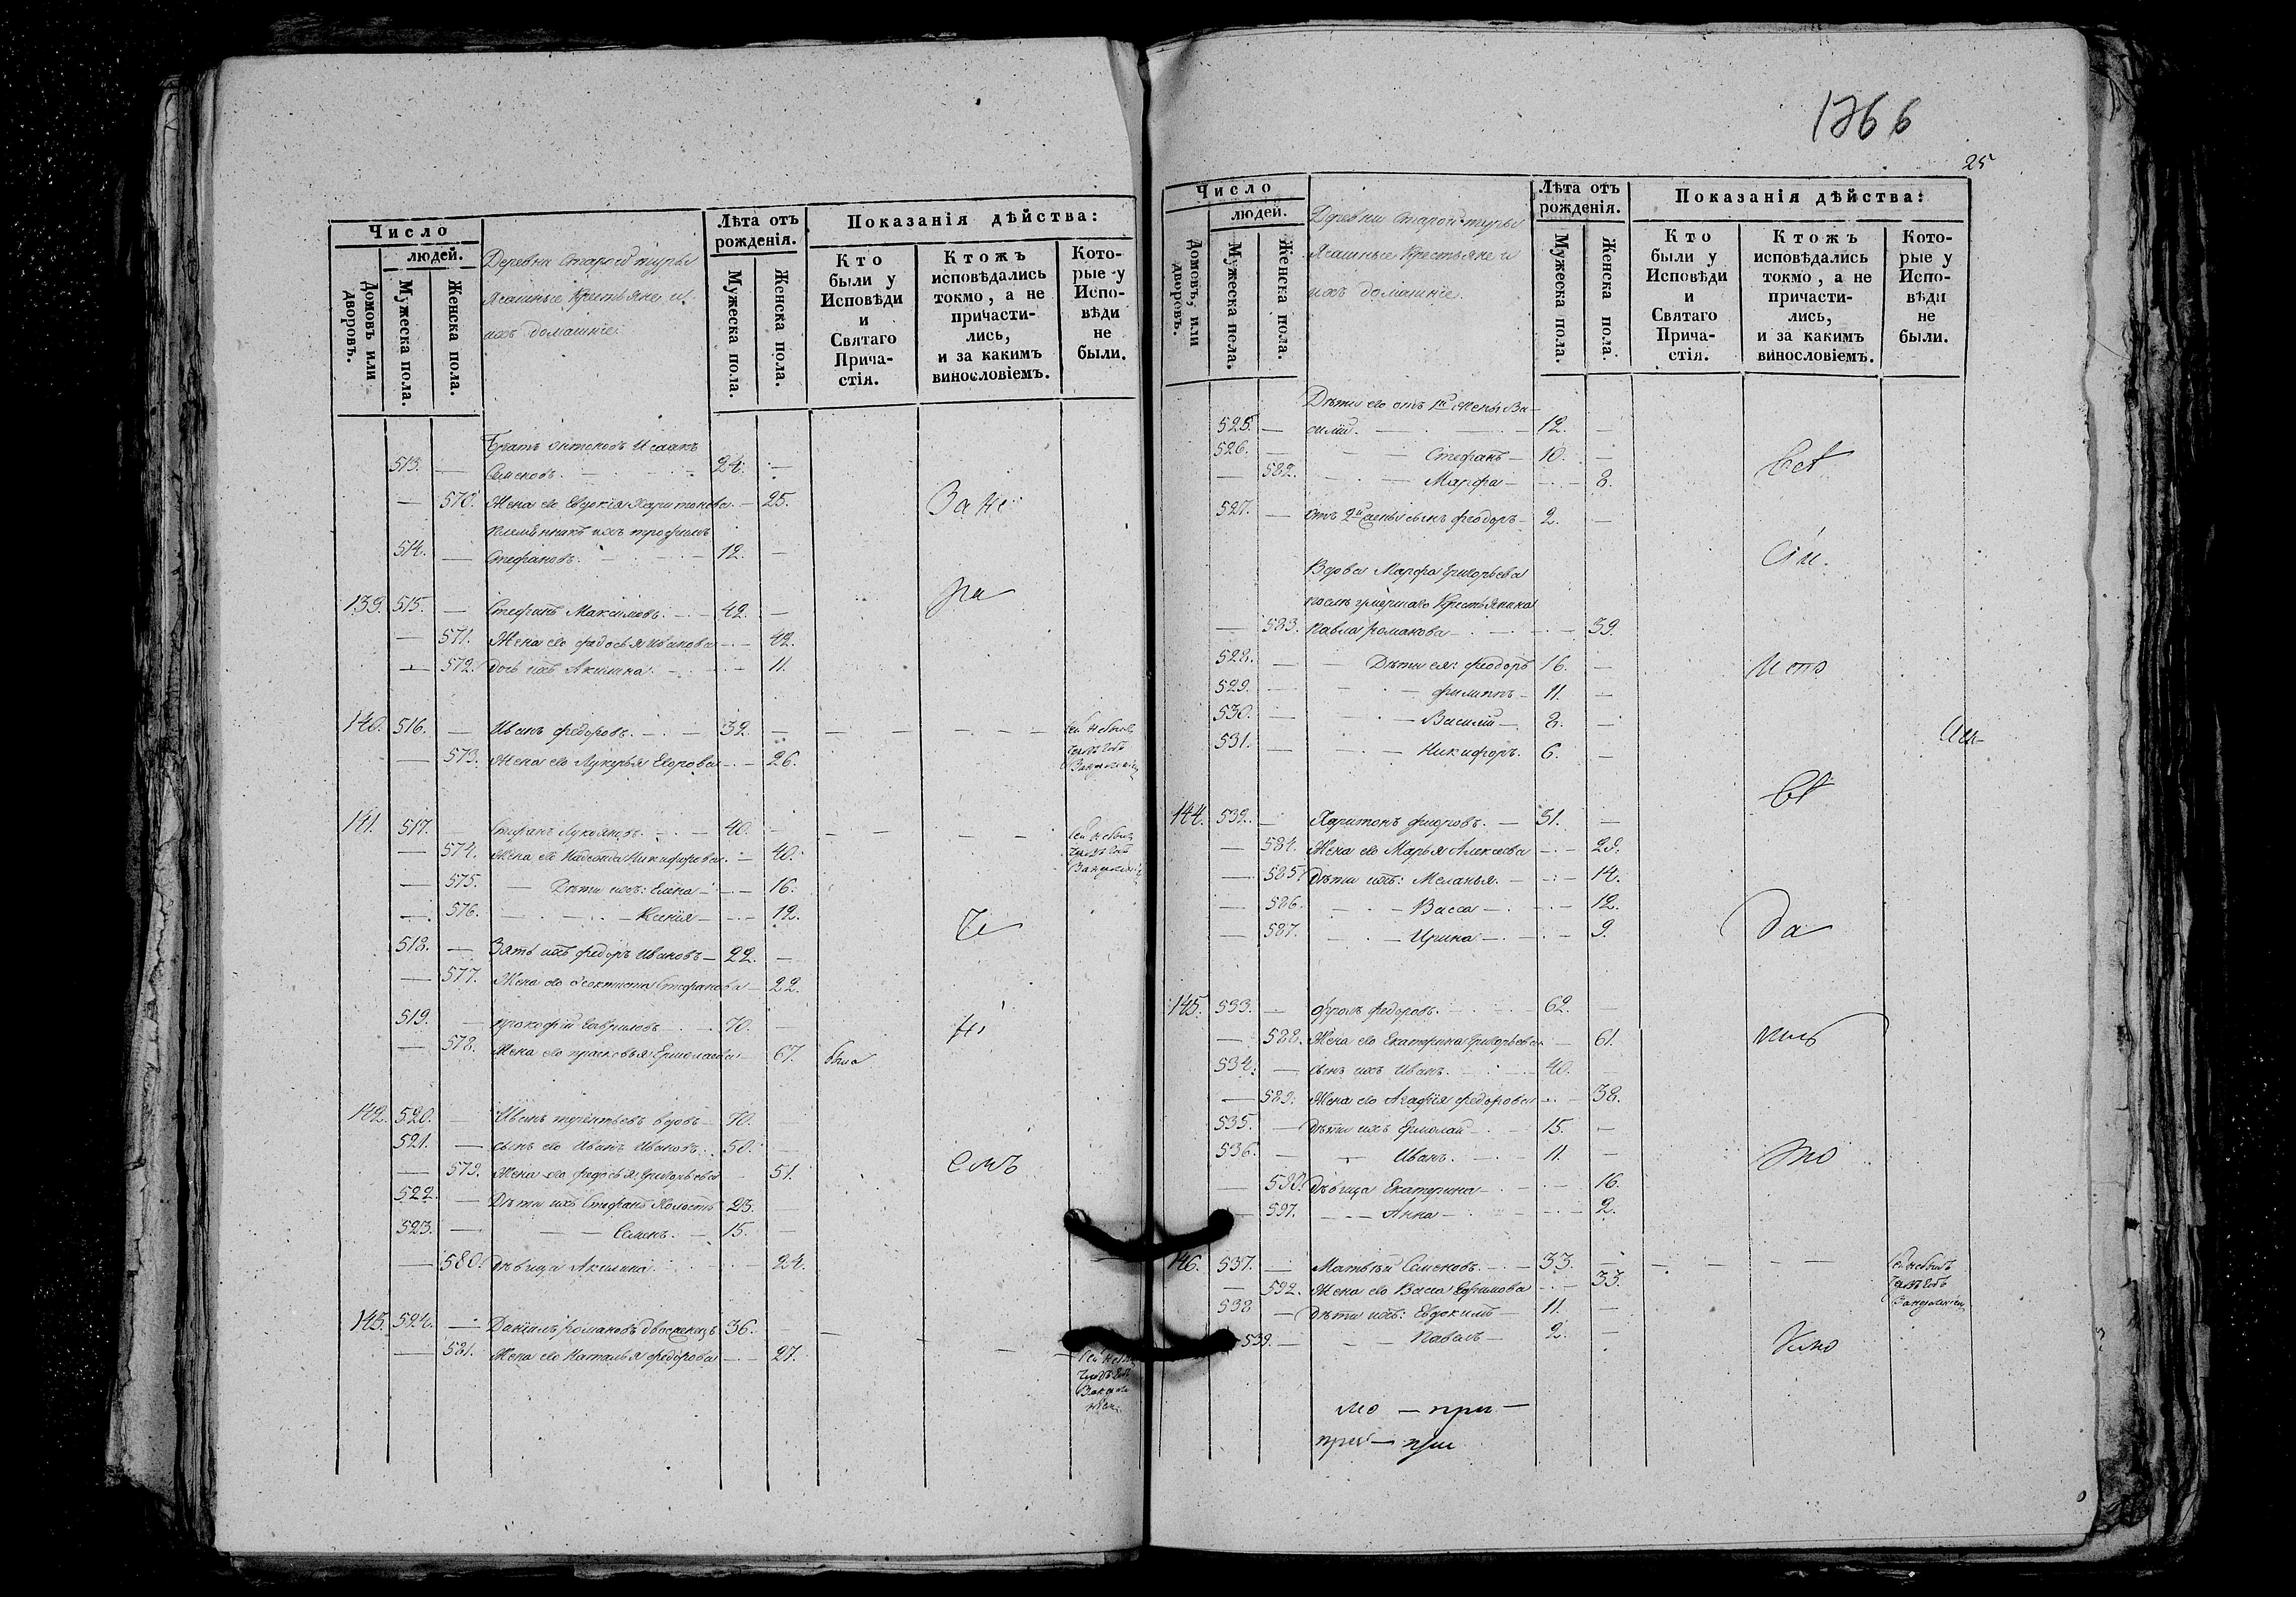 Число
людей.
Домовъ или дворовъ.
Мужеска пола.
Женска пола.
Деревни Старой туры
Ясашные крестьяне и
ихъ домашніе.
Лѣта отъ
рожденія.
Мужеска пола.
Женска пола.
Показанія дѣйства:
Кто были у Исповѣди и Святаго Прича-стія.
Ктожъ исповѣдались токмо, а не причасти-лись, и за какимъ винословіемъ.
Кото-рые у Испо-вѣди не были.
Братъ Антоновъ Исаакъ
513. — Семеновъ. 24. —
— 570. Жена его Евдокія Харитонова — 25. За не
племянникъ ихъ трофимъ
514. — Стефановъ. 12. —
139. 515. — Стефанъ Максимовъ. 42. —
— 571. Жена его федосья иванова — 42.
— 572. дочь ихъ Акилина. — 11.
140. 516. — Иванъ федоровъ. 32. —
— 573. Жена его Лукерья Егорова — 26.
141. 517. — Стефанъ Лукояновъ. 40. —
— 574. Жена его Надежда Никифорова — 40.
— 575. — Дѣти ихъ: Елена — 16.
— 576. — Ксенія — 12.
518. — Зять ихъ федоръ Ивановъ — 22. —
— 577. Жена его Феоктиста Стефанова — 22.
519. — прокофій Гавриловъ 70. —
— 578. Жена его прасковья Ермолаева — 67. была
142. 520. — Иванъ терентьевъ вдовъ 70. —
521. — сынъ его Иванъ Ивановъ. 50. —
— 579. Жена его федосья Григорьева — 51.
522. — Дѣти ихъ Стефанъ Холостъ 23. —
523. — Семенъ. 15. —
— 580. дѣвица Акилина — 24.
143. 524. — Даніилъ романовъ двоеженецъ 36. —
— 581. Жена его Наталья федорова — 27.
1766
25
Число
людей.
Домовъ, или дворовъ.
Мужеска пола.
Женска пола.
Деревни Старой туры
Ясашные Крестьяне и
ихъ домашніе.
Лѣта отъ
рожденія.
Мужеска пола.
Женска пола.
Показанія дѣйства:
Кто были у Исповѣди и Святаго Прича-стія.
Ктожъ исповѣдались токмо, а не причасти-лись, и за какимъ винословіемъ.
Кото-рые у Испо-вѣди не были.
Дѣти его отъ 1й жены Ва-
525. — силій. 12. —
526. — Стефанъ — 10. —
— 582. Марфа — 8.
527. — отъ 2й жены сынъ феодоръ — 2. —
Вдова Марфа григорьева
послѣ умершаго Крестьянина
— 583. павла романова — 39.
528. — Дѣти ея: феодоръ 16. —
529. — филиппъ — 11. —
530. — Василій — 8. —
531. — Никифоръ. 6. —
144. 532. — Харитонъ фроровъ. — 31. —
— 584. Жена его Марья Алексеева — 28.
— 585. Дѣти ихъ: Меланья. — 14.
— 586. — Васса — 12.
— 587. — Ирина — 9.
145. 533. — фролъ федоровъ. 62. —
— 588. Жена его Екатерина григорьева — 61.
534. — сынъ ихъ Иванъ. 40. —
— 589. Жена его Агафія федорова — 38.
535. — дѣти ихъ Ермолай 15. —
536. — Иванъ. 11. —
— 590. дѣвица Екатерина — 16.
— 591. — Анна — 2.
146. 537. — Матвѣй Семеновъ. 33. —
— 592. Жена его Васса Ефимова — 33.
538. — дѣти ихъ: Евдокимъ 11. —
539. — Павелъ — 2. —